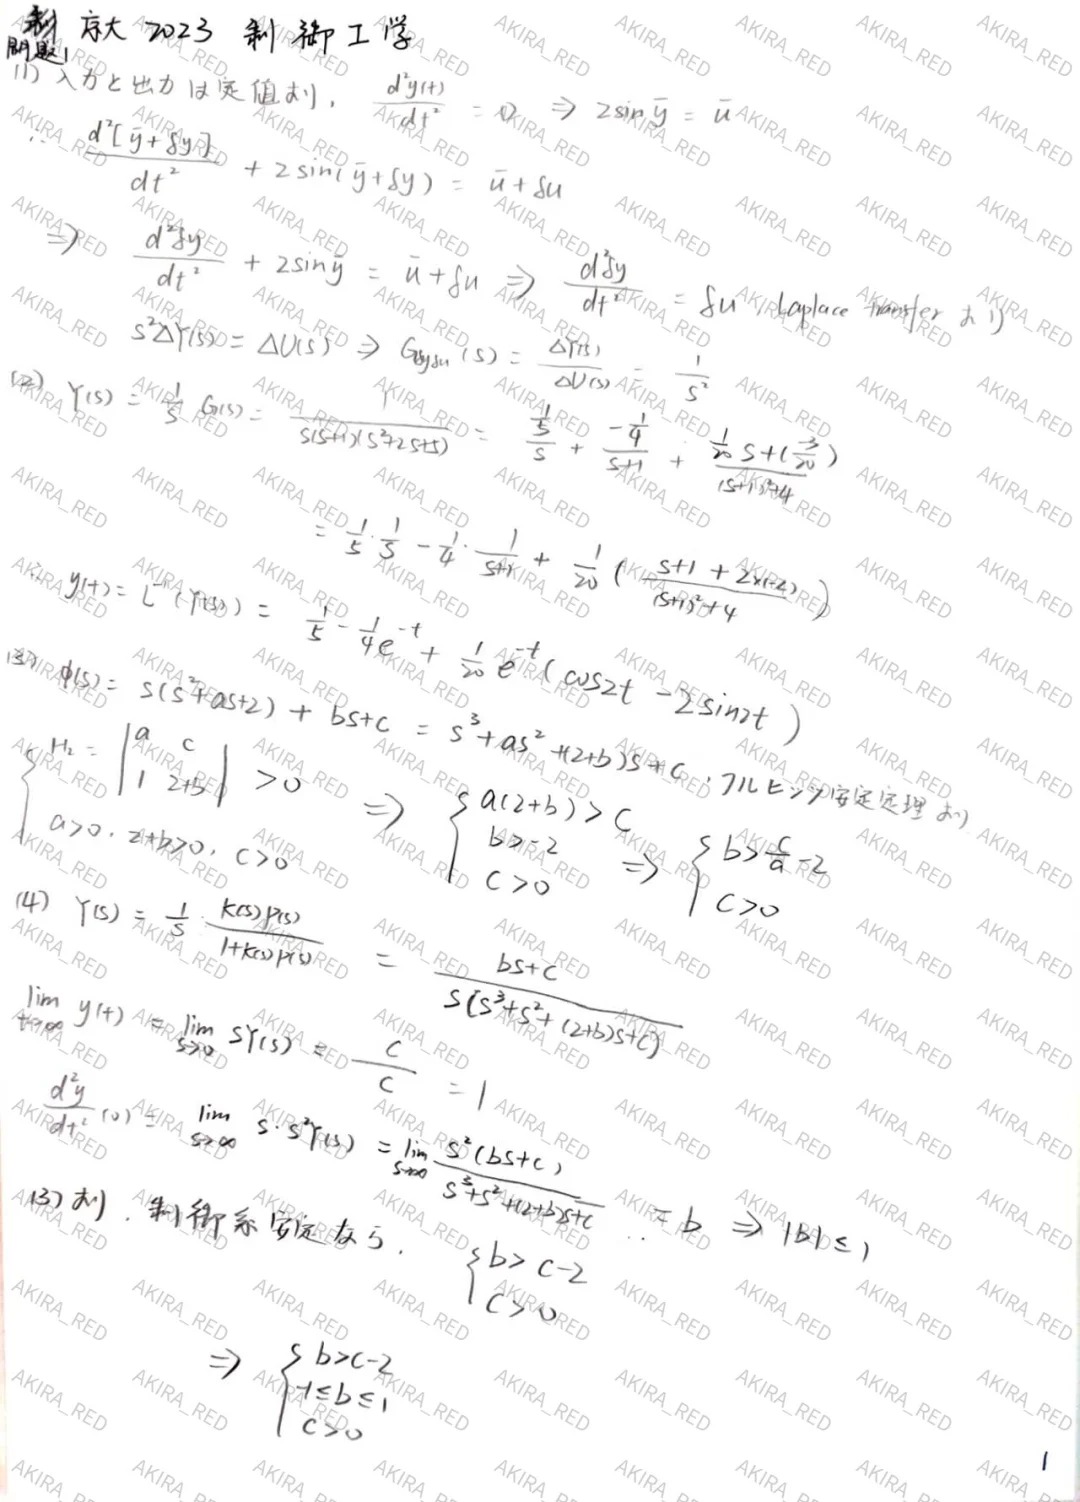 京大 2023 制御工学
問題1
(1) 入力と出力は定値より, d²y(t)/dt² = 0 ⇒ 2sin ȳ = ū
∴ d²[ȳ+δy]/dt² + 2sin(ȳ+δy) = ū+δu
⇒ d²δy/dt² + 2sinȳ = ū+δu ⇒ d²δy/dt² = δu, Laplace transfer より
s²ΔY(s) = ΔU(s) ⇒ Gδyδu(s) = ΔY(s)/ΔU(s) = 1/s²
(2) Y(s) = 1/s G(s) = 1/(s(s+1)(s²+2s+5)) = (1/5)/s + (-1/4)/(s+1) + (1/20 s+(-3/20))/((s+1)²+4)
= 1/5 · 1/s - 1/4 · 1/(s+1) + 1/20 ( (s+1 + 2×(-2))/((s+1)²+4) )
∴ y(t) = L⁻¹(Y(s)) = 1/5 - 1/4 e^-t + 1/20 e^-t (cos2t - 2sin2t)
(3) φ(s) = s(s²+as+2) + bs+c = s³+as²+(2+b)s+c, フルビッツ安定定理より
{ H₂ = | a c | 1 2+b | > 0
a>0, 2+b>0, c>0
⇒ { a(2+b) > c
b > -2
c > 0
⇒ { b > c/a - 2
c > 0
(4) Y(s) = 1/s · K(s)P(s)/(1+K(s)P(s)) = (bs+c)/(s[s³+s²+(2+b)s+c])
lim t→∞ y(t) = lim s→0 sY(s) = c/c = 1
d²y/dt² (0) = lim s→∞ s·s²Y(s) = lim s→∞ s²(bs+c)/(s³+s²+(2+b)s+c) = b ⇒ |b| ≤ 1
(3)より, 制御系安定なら, { b > c-2
c > 0
⇒ { b > c-2
-1 ≤ b ≤ 1
c > 0
1
AKIRA_RED